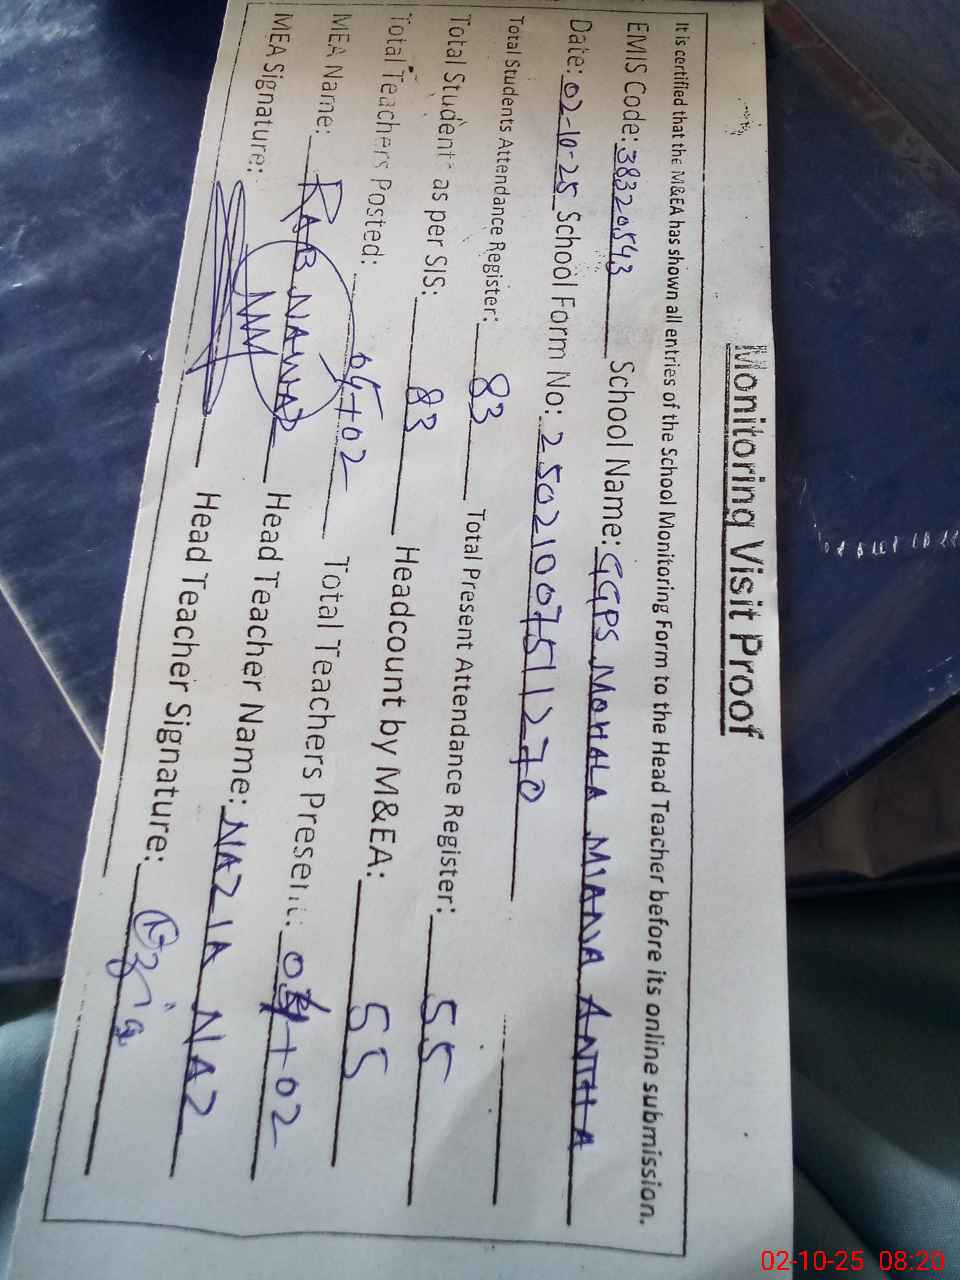 Monitoring Visit Proof
It is certified that the M&EA has shown all entries of the School Monitoring Form to the Head Teacher before its online submission.
EMIS Code: 38320543 School Name: GGPS MOHALA MIANA ANTHA
Date: 02-10-25 School Form No: 25021007511270
Total Students Attendance Register: 83 Total Present Attendance Register: 55
Total Students as per SIS: 83 Headcount by M&EA: 55
Total Teachers Posted: +02 Total Teachers Present: +02
MEA Name: RAB NAWAZ Head Teacher Name: NAZIA NAZ
MEA Signature: Head Teacher Signature:
02-10-25 08:20